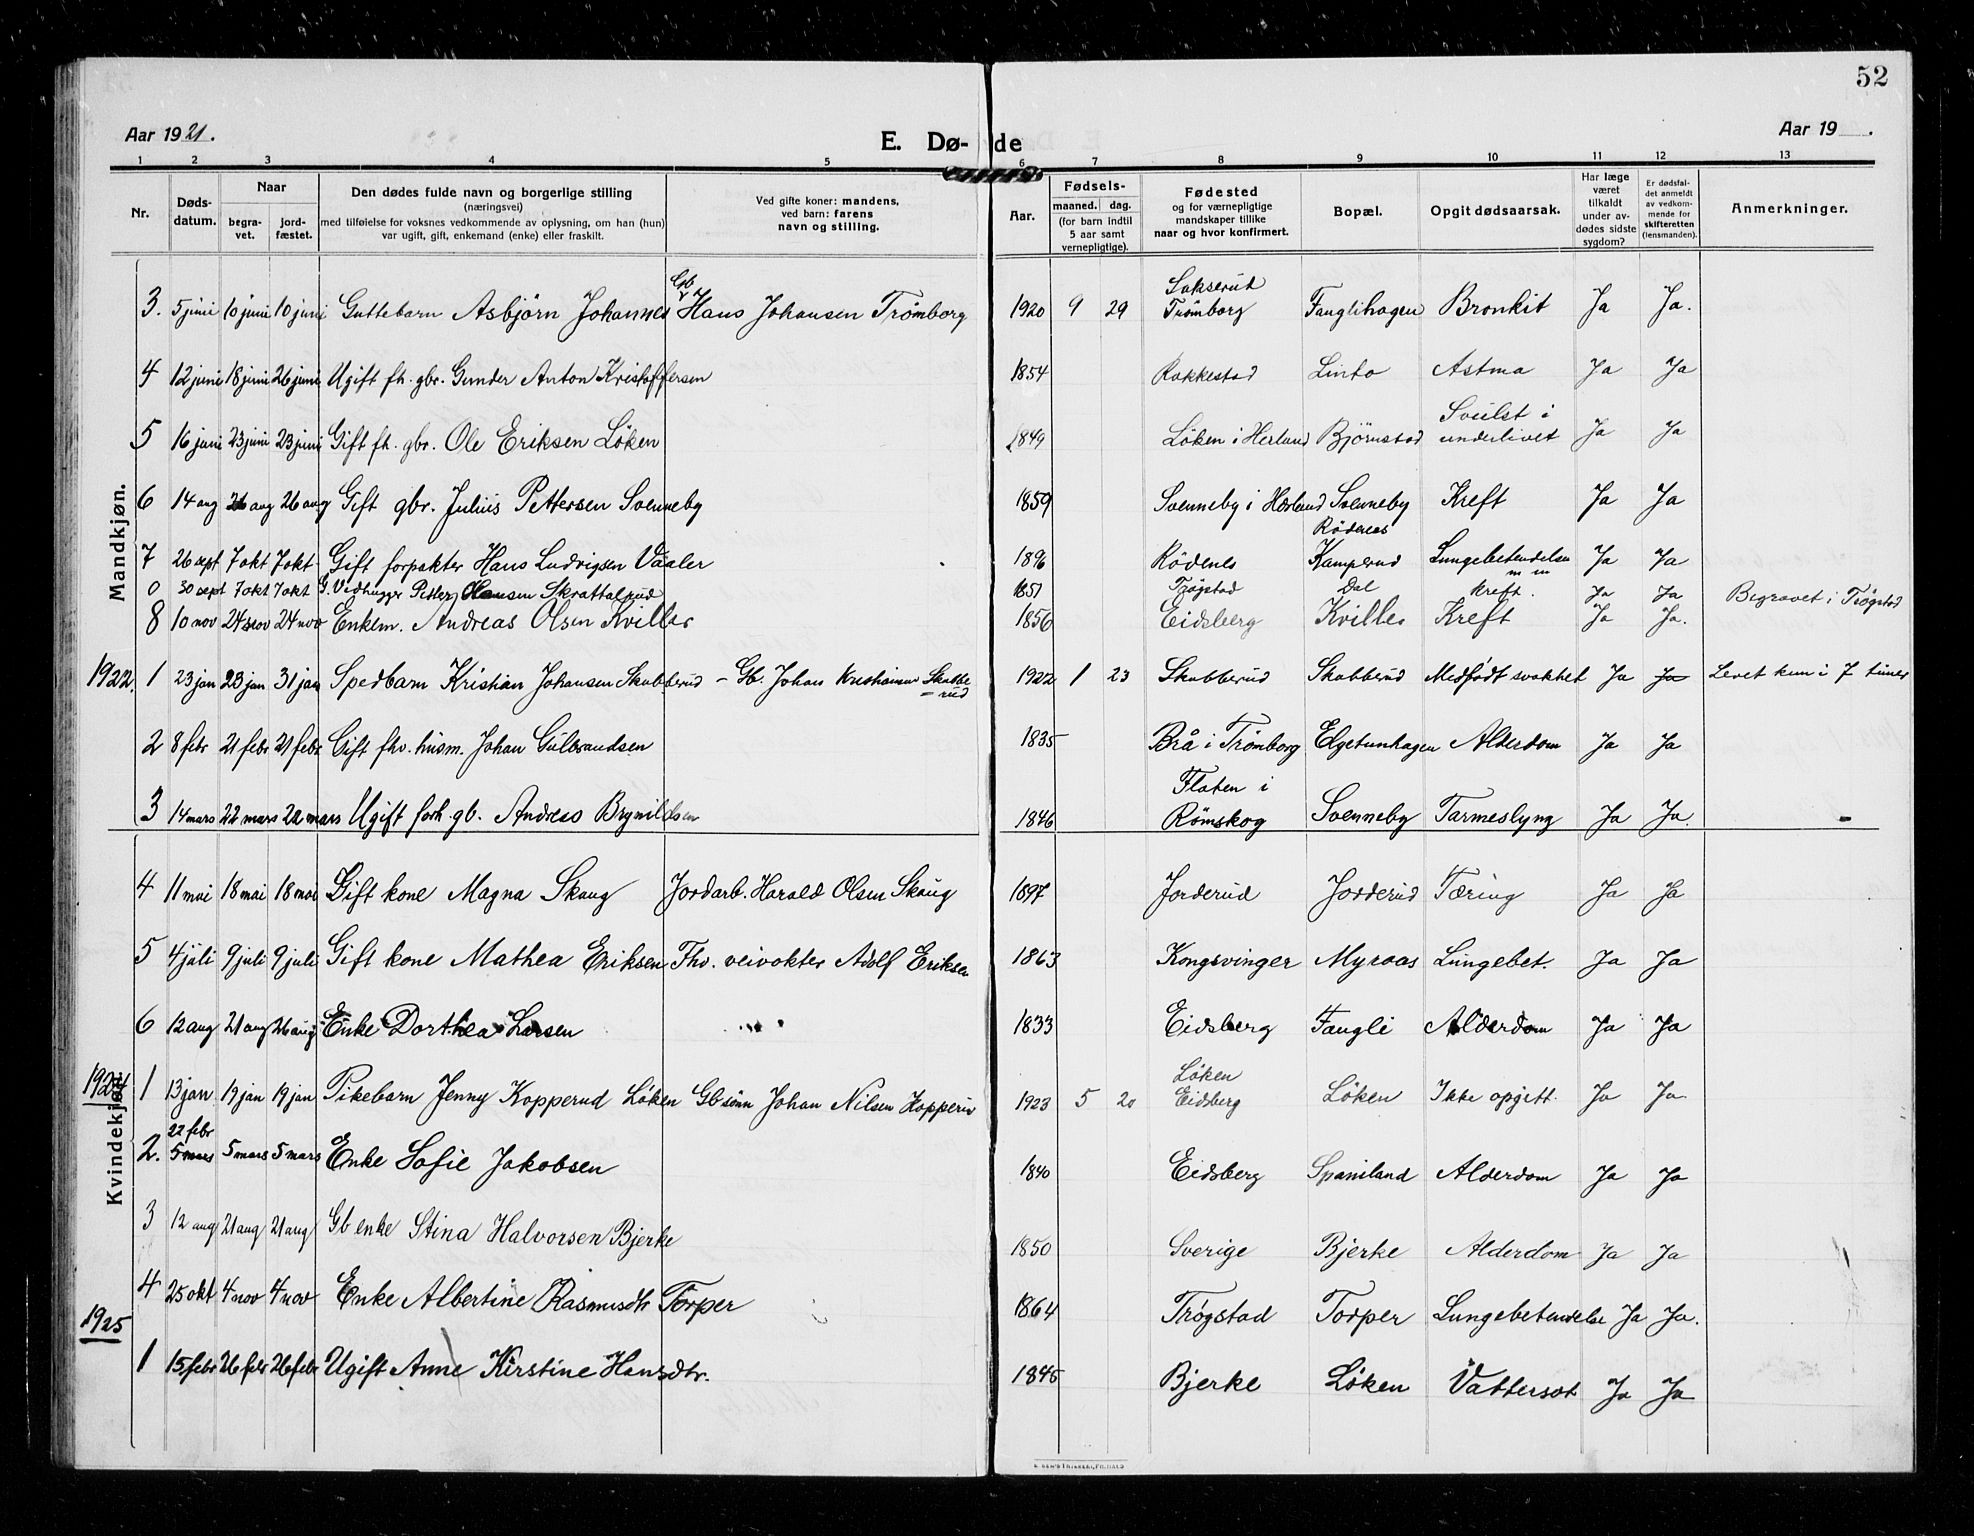 52
Aar 1921. E. Dø- de Aar 19 .
1 2 3 4 5 6 7 8 9 10 11 12 13
Nr. Døds-datum. Naar begra-vet. jord-fæstet. Den dødes fulde navn og borgerlige stilling (næringsvei) med tilføielse for voksnes vedkommende av oplysning, om han (hun) var ugift, gift, enkemand (enke) eller fraskilt. Ved gifte koner: mandens, ved barn: farens navn og stilling. Aar. Fødsels- maaned. dag. (for barn indtil 5 aar samt vernepligtige). Fødested og for værnepligtige mandskaper tillike naar og hvor konfirmert. Bopæl. Opgit dødsaarsak. Har læge været tilkaldt under av-dødes sidste sygdom? Er dødsfal-det anmeldt av vedkom-mende for skifteretten (lensmanden). Anmerkninger.
Mandkjøn.
3. 5 juni 10 juni 10 juni Guttebarn Asbjörn Johannes Gb Hans Johansen Trömborg 1920 9 29 Sakserud Trömborg Fanglihagen Bronkit Ja Ja.
4 12 juni 18 juni 26 juni Ugift fh. gbr. Gunder Anton Kristoffersen 1854 Rakkestad Linto Astma Ja Ja
5 16 juni 23 juni 23 juni Gift fh. gbr. Ole Eriksen Löken 1849 Löken i Herland Björnstad Svulst i underlivet Ja Ja
6 14 aug 26 aug 26 aug Gift gbr. Julius Pettersen Svenneby 1859 Svenneby i Herland Svenneby Kreft Ja Ja
7 26 sept 7 okt 7 okt Gift forpakter Hans Ludvigsen Vaaler 1896 Rödenes Rödenes Kamperud Lungebetendelse Ja Ja
0 30 sept 7 okt 7 okt G. Vedhugger Petter Hansen Skrattalsrud 1851 Trøgstad Dal kreft. Ja Ja Begravet i Trøgstad
8 10 nov 24 nov 24 nov Enkem. Andreas Olsen Kviller 1856 Eidsberg Kviller Kreft Ja Ja.
1922. 1 23 jan 23 jan 31 jan Spedbarn Kristian Johansen Skabberud - Gb. Johan Kristiansen Skabbe=rud 1922 1 23 Skabberud Skabberud Medfödt svakhet Ja Ja Levet kun i 7 timer
2 8 febr 21 febr 21 febr Gift fhv. husm. Johan Gulbrandsen 1835 Brå i Trömborg Elgetunhagen Alderdom Ja Ja
3 14 mars 22 mars 22 mars Ugift forh. gb. Andreas Brynildsen 1846 Flaten i Römskog Svenneby Tarmeslyng Ja Ja. -
Kvindekjøn.
4 11 mai 18 mai 18 mai Gift kone Magna Skaug Jordarb. Harald Olsen Skaug 1897 Jorderud Jorderud Tæring Ja Ja
5 4 juli 9 juli 9 juli Gift kone Mathea Eriksen Fhv. veivokter Adolf Eriksen 1863 Kongsvinger Myraas Lungebet. Ja Ja
6 12 aug 21 aug 26 aug Enke Dorthea Larsen 1833 Eidsberg Fangli Alderdom Ja Ja
1924 1 13 jan 19 jan 19 jan Pikebarn Jenny Kopperud Löken Gbsönn Johan Nilsen Kopperud 1923 5 20 Löken Eidsberg Löken Ikke opgitt. Ja Ja
2. 22 febr 5 mars 5 mars 5 mars Enke Sofie Jakobsen 1840 Eidsberg Spaniland Alderdom Ja Ja
3 12 aug 21 aug 21 aug Gb enke Stina Halvorsen Bjerke 1850 Sverige Bjerke Alderdom Ja Ja
4 25 okt 4 nov 4 nov Enke Albertine Rasmusdtr Torper 1864 Trøgstad Torper Lungebetendelse Ja Ja.
1925
1 15 febr 26 febr 26 febr Ugift Anne Kirstine Hansdtr. 1845 Bjerke Løken Vattersot Ja Ja